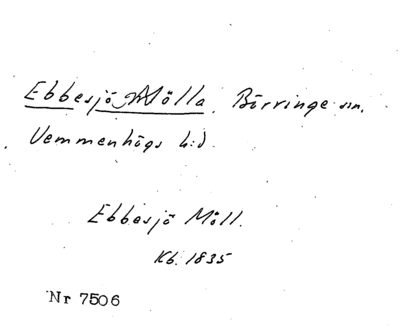 Ebbesjö Mölla. Börringe sn.
Vemmenhögs h:d.
Ebbesjö Möll.
Kb. 1835
Nr 7506